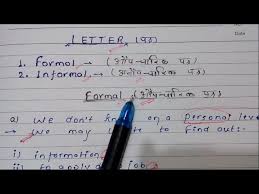 LETTER (पत्र)
Date
1. Formal → (औपचारिक पत्र)
2. Informal → (अनौपचारिक पत्र)
Formal (औपचारिक पत्र)
a) We don't know on a personal level
→ We may write to find out:-
i) information
ii) to apply a job